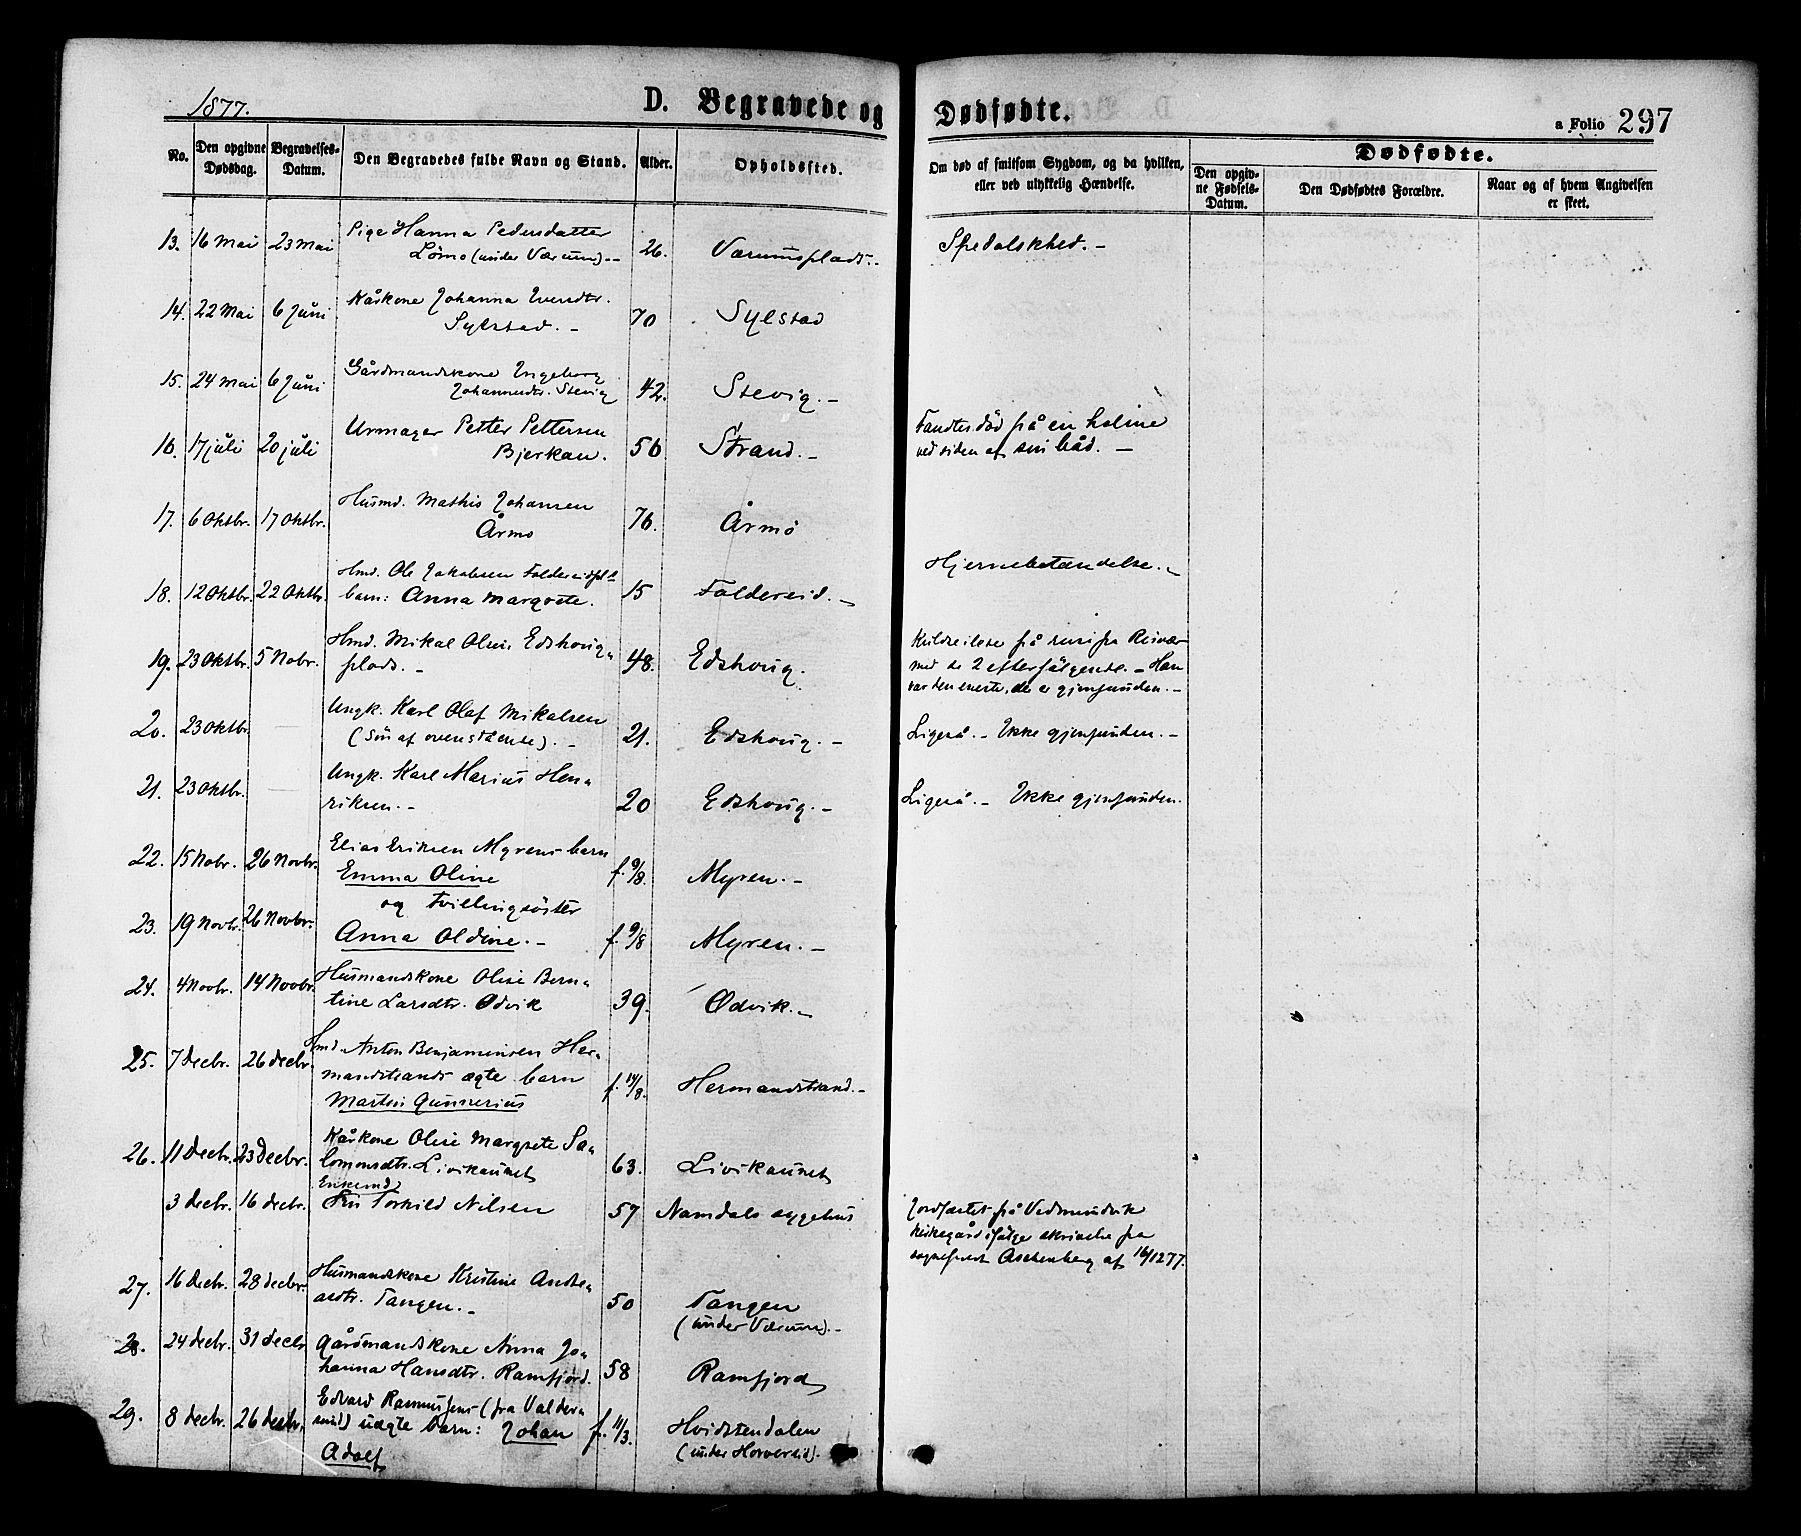 1877. D. Begravede og Dødfødte. a Folio 297
No. Den opgivne Dødsdag. Begravelses-Datum. Den Begravedes fulde Navn og Stand. Alder. Opholdssted. Om død af smitsom Sygdom, og da hvilken, eller ved ulykkelig Hændelse. Dødfødte. Den opgivne Fødsels-Datum. Den Dødfødtes Forældre. Naar og af hvem Angivelsen er skeet.
13. 16 Mai 23 Mai Pige Hanna Pedersdatter 26. Værumsplads.- Spedalskhed.-
Lømo (under Værum).-
14. 22 Mai 6 Juni Kårkone Johanna Iversdtr. 70 Sylstad
Sylstad.-
15. 24 Mai 6 Juni Gårdmandskone Ingeborg 42. Stevig.-
Johannesdtr. Stevig
16. 17 juli 20 juli Urmager Petter Pettersen 56 Strand.- Fandtes død på en holme
Bjerkan. ved siden af sin båd.-
17. 6 Oktbr. 17 Oktbr. Husmd. Mathis Johansen 76. Årmo
Årmo
18. 12 Oktbr. 22 Oktbr. Hmd. Ole Jakobsen Foldereidpl. 15 Foldereid.- Hjernebetændelse.-
barn: Anna Margrete.
19. 23 Oktbr. 5 Nobr. Hmd. Mikal Olsen Edshoug- 48. Edshoug. Kuldseilede på reise fra Risvær
plads.- med de 2 efterfølgende.- Han
var den eneste, der er gjenfunden.-
20. 23 Oktbr. Ungk. Karl Olaf Mikalsen 21. Edshoug.- Ligeså.- Ikke gjenfunden.-
(Søn af ovenstående).-
21. 23 Oktbr. Ungk. Karl Marius Hen- 20 Edshoug.- Ligeså.- Ikke gjenfunden.
riksen.-
22. 15 Nobr. 26 Novbr. Elias Eriksen Myrens barn f. 9/8. Myren.-
Emma Oline
og Tvillingsøster
23. 19 Novbr. 26 Novbr. Anna Oldine.- f. 9/8 Myren.-
24. 4 Novbr. 14 Novbr. Husmandskone Olise Bern- 39. Ødvik.-
tine Larsdtr. Ødvik
25. 7 Decbr. 26 decbr. Hmd. Anton Benjaminsen Her- f. 14/8. Hermandstrand.-
mandstrands ægte barn
Martin Gunnerius
26. 11 Decbr. 23 Decbr. Kårkone Olise Margrete Sa- 63. Livikaunet
lomonsdtr. Livikaunet
Enkemd.
3 decbr. 16 decbr. Torkild Nilsen 57 Namdals sygehus Jordfæstet på Vedmundvik
kirkegård ifølge skrivelse fra
sogneprest Aschenberg af 16/1277.
27. 16 decbr. 28 decbr. Husmandskone Kristine Andre- 50 Tangen
asdtr. Tangen.- (under Værum).-
28. 24 decbr. 31 decbr Gårdmandskone Anna Jo- 58 Ramfjord
hanna Hansdtr. Ramfjord.
29. 8 decbr. 26 decbr. Edvard Rasmussens (fra Valder- f. 11/3. Hvidstendalen
sund) uægte barn: Johan (under Horvereid).
Adolf